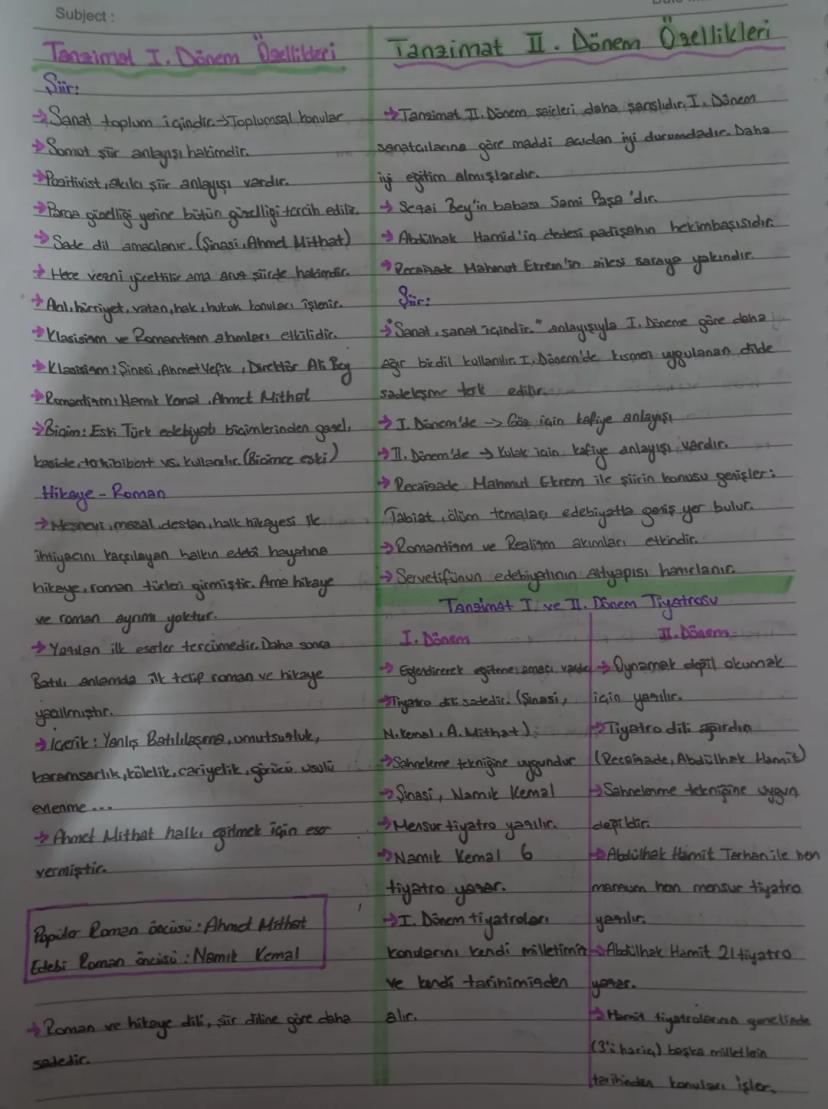 Subject :
Tanzimat I. Dönem Özellikleri
Şiir:
→ Sanat toplum içindir. → Toplumsal konular
→ Somut şiir anlayışı hakimdir.
→ Pozitivist, akılcı şiir anlayışı vardır.
→ Parça güzelliği yerine bütün güzelliği tercih edilir.
→ Sade dil amaçlanır. (Şinasi, Ahmet Mithat)
→ Hece vezni yüceltilir ama aruz şiirde hakimdir.
→ Akıl, hürriyet, vatan, hak, hukuk konuları işlenir.
→ Klasisizm ve Romantizm akımları etkilidir.
→ Klasisizm: Şinasi, Ahmet Vefik, Direktör Ali Bey
→ Romantizm: Namık Kemal, Ahmet Mithat
→ Biçim: Eski Türk edebiyatı biçimlerinden gazel,
kaside, terkibibent vs. kullanılır. (Biçimce eski)
Hikaye - Roman
→ Mesnevi, masal, destan, halk hikayesi ile
ihtiyacını karşılayan halkın edebi hayatına
hikaye, roman türleri girmiştir. Ama hikaye
ve roman ayrımı yoktur.
→ Yazılan ilk eserler tercümedir. Daha sonra
Batılı anlamda ilk telif roman ve hikaye
yazılmıştır.
→ İçerik: Yanlış Batılılaşma, umutsuzluk,
karamsarlık, kölelik, cariyelik, görücü usulü
evlenme ...
→ Ahmet Mithat halkı eğitmek için eser
vermiştir.
Popüler Roman öncüsü: Ahmet Mithat
Edebi Roman öncüsü: Namık Kemal
→ Roman ve hikaye dili, şiir diline göre daha
sadedir.
Tanzimat II. Dönem Özellikleri
→ Tanzimat II. Dönem şairleri daha şanslıdır. I. Dönem
sanatçılarına göre maddi açıdan iyi durumdadır. Daha
iyi eğitim almışlardır.
→ Sezai Bey'in babası Sami Paşa'dır.
→ Abdülhak Hamid'in dedesi padişahın hekimbaşısıdır.
→ Recaizade Mahmut Ekrem'in ailesi saraya yakındır.
Şiir:
→ "Sanat, sanat içindir." anlayışıyla I. Döneme göre daha
ağır bir dil kullanılır. I. Dönem'de kısmen uygulanan dilde
sadeleşme terk edilir.
→ I. Dönem'de → Göz için kafiye anlayışı
→ II. Dönem'de → Kulak için kafiye anlayışı vardır.
→ Recaizade Mahmut Ekrem ile şiirin konusu genişler:
Tabiat, ölüm temaları edebiyatta geniş yer bulur.
→ Romantizm ve Realizm akımları etkindir.
→ Servetifünun edebiyatının altyapısı hazırlanır.
Tanzimat I. ve II. Dönem Tiyatrosu
I. Dönem
→ Eğlendirerek eğitme amacı vardır
→ Tiyatro dili sadedir. (Şinasi,
N. Kemal, A. Mithat)
→ Sahneleme tekniğine uygundur
→ Şinasi, Namık Kemal
→ Mensur tiyatro yazılır.
→ Namık Kemal 6
tiyatro yazar.
→ I. Dönem tiyatroları
konularını kendi milletimiz
ve kendi tarihimizden
alır.
II. Dönem
→ Oynamak değil okumak
için yazılır.
→ Tiyatro dili ağırdır.
(Recaizade, Abdülhak Hamit)
→ Sahnelenme tekniğine uygun
değildir.
→ Abdülhak Hamit Tarhan ile hem
manzum hem mensur tiyatro
yazılır.
→ Abdülhak Hamit 21 tiyatro
yazar.
→ Hamit tiyatrolarının genelinde
(3'ü hariç) başka milletlerin
tarihinden konuları işler.